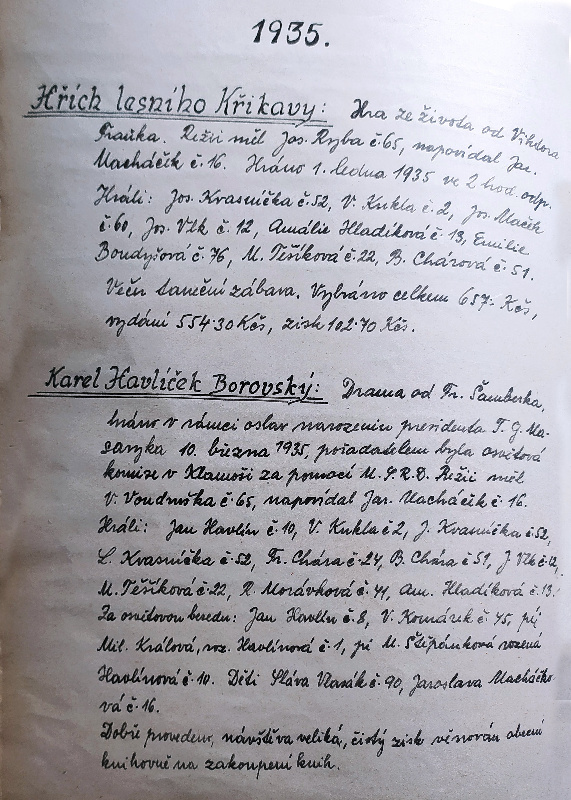 1935.
Hřích lesního Křikavy: Hra ze života od Viktora
Frauka. Režii měl Jos. Ryba č 65, napovídal Jar.
Macháčik č. 16. Hráno 1. ledna 1935 ve 2 hod. odp.
Hráli: Jos. Krasnička č. 52, V. Kukla č. 2, Jos. Mačih
č. 60, Jos. Vlk č. 12, Amálie Hladíková č 13, Emilie
Boudyšová č. 76, M. Těšíková č. 22, B. Chárová č. 51.
Večer taneční zábava. Vybráno celkem 657.- Kčs,
vydání 554.30 Kčs, zisk 102.70 Kčs.
Karel Havlíček Borovský: Drama od Fr. Šamberka,
hráno v rámci oslav narozenin presidenta T. G. Ma-
saryka 10. března 1935, pořadatelem byla osvětová
komise v Klamoši za pomoci M. S. R. D. Režii měl
V. Voudruška č. 65, napovídal Jar. Macháčik č. 16.
Hráli: Jan Havlín č. 10, V. Kukla č 2, J. Krasnička č. 52,
L. Krasnička č. 52, Fr. Chára č. 24, B. Chára č 51, J Vlk č. 12,
M. Těšíková č. 22, R. Morávková č. 41, Am. Hladíková č. 13.
Za osvětovou besedu: Jan Havlín č. 8, V. Komárek č. 45, pí
Mil. Králová, roz. Havlínová č. 1, pí M. Štěpánková rozená
Havlínová č. 10. Děti Sláva Vlasák č. 90, Jaroslava Macháčko-
vá č. 16.
Dobře provedeno, návštěva veliká, čistý zisk věnován obecní
knihovně na zakoupení knih.